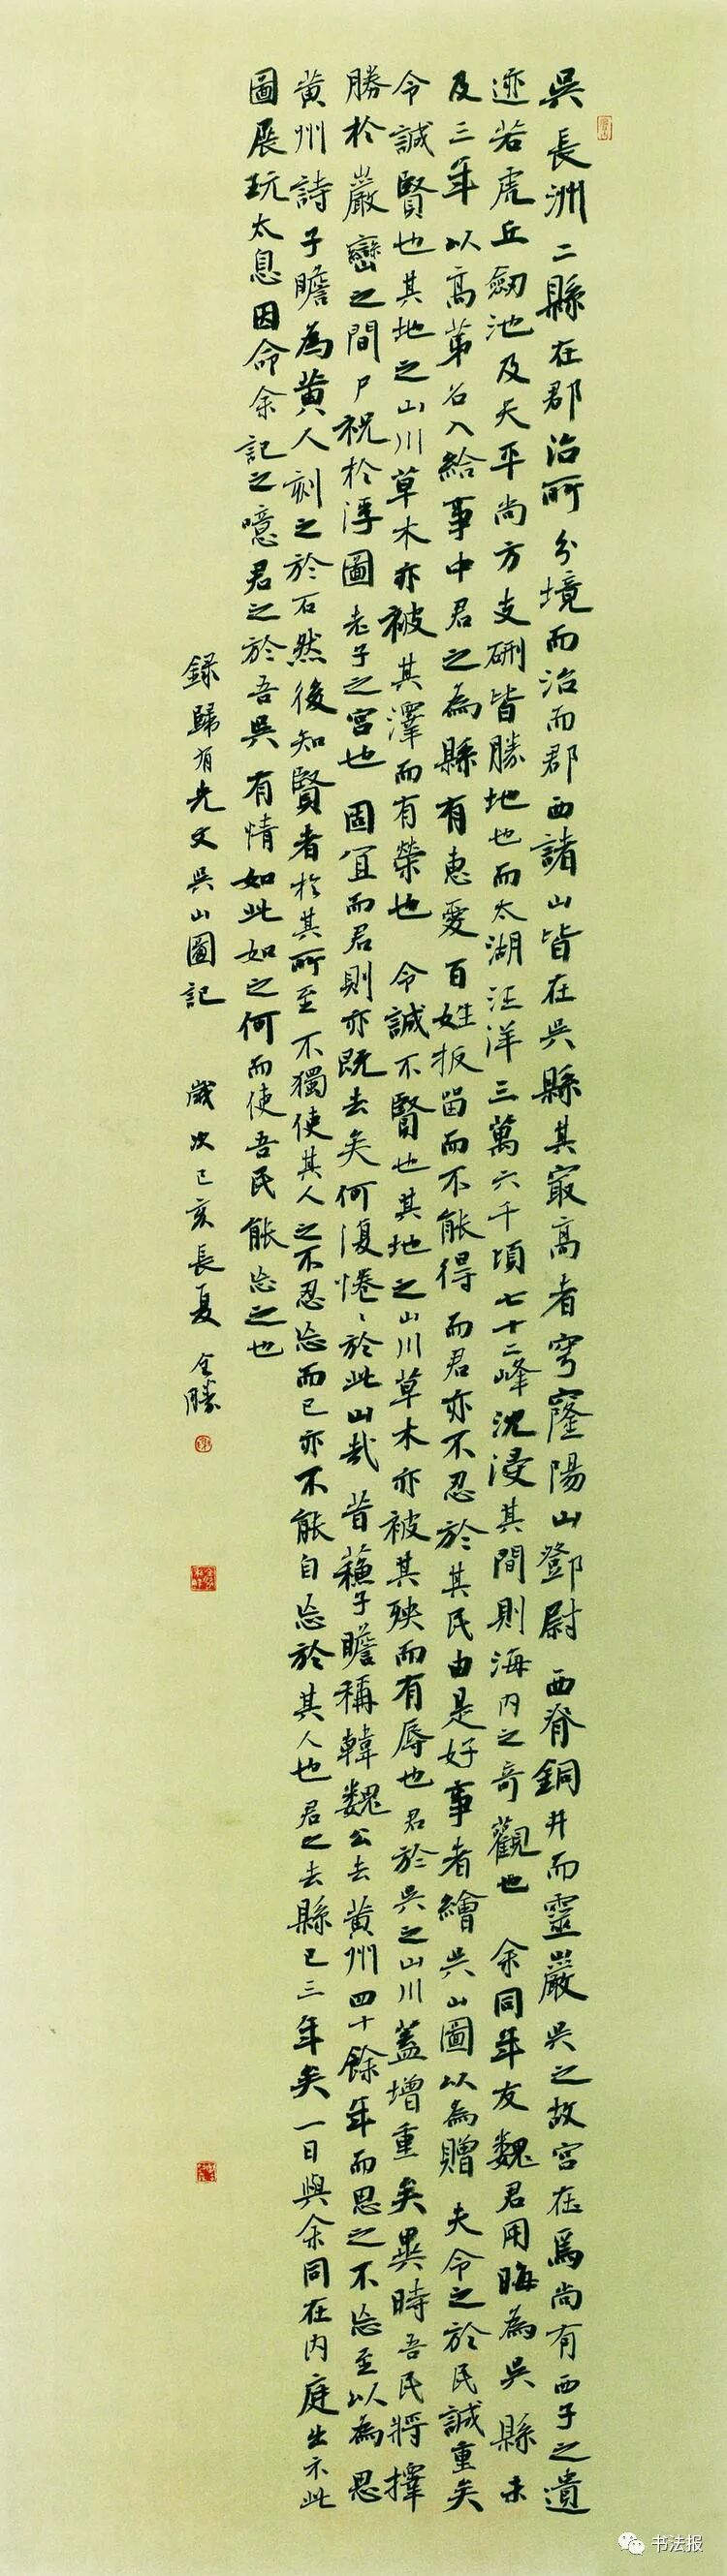 吳長洲二縣在郡治所分境而治而郡西諸山皆在吳縣其最高者穹窿陽山鄧尉西脊銅井而靈巖吳之故宮在焉尚有西子之遺
迹若虎丘劒池及天平尚方支硎皆勝地也而太湖汪洋三萬六千頃七十二峰沈浸其間則海內之奇觀也余同年友魏君用晦為吳縣未
及三年以高第召入給事中君之為縣有惠愛百姓扳留而不能得而君亦不忍於其民由是好事者繪吳山圖以為贈夫令之於民誠重矣
令誠賢也其地之山川草木亦被其澤而有榮也令誠不賢也其地之山川草木亦被其殃而有辱也君於吳之山川蓋增重矣異時吾民將擇
勝於巖巒之間尸祝於浮圖老子之宮也固宜而君則亦既去矣何復惓〻於此山哉昔蘇子瞻稱韓魏公去黃州四十餘年而思之不忘至以為思
黃州詩子瞻為黃人刻之於石然後知賢者於其所至不獨使其人之不忍忘而已亦不能自忘於其人也君之去縣已三年矣一日與余同在內庭出示此
圖展玩太息因命余記之噫君之於吾吳有情如此如之何而使吾民能忘之也
錄歸有光文吳山圖記 歲次己亥長夏 全勝
书法报